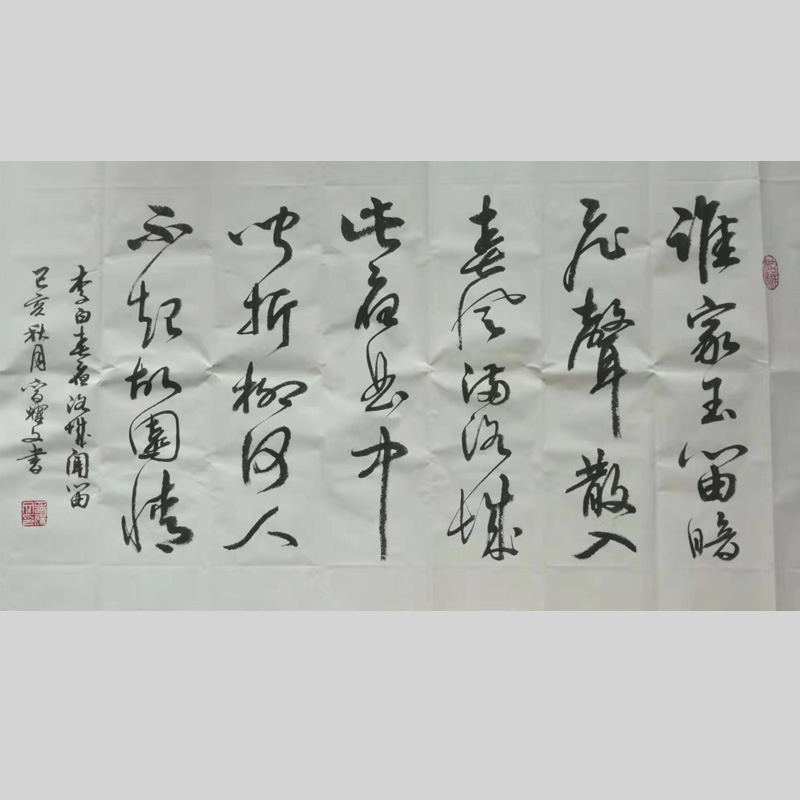 誰家玉笛暗
飛聲散入
春風滿洛城
此夜曲中
聞折柳何人
不起故園情
李白春夜洛城聞笛
己亥秋月宮耀文書